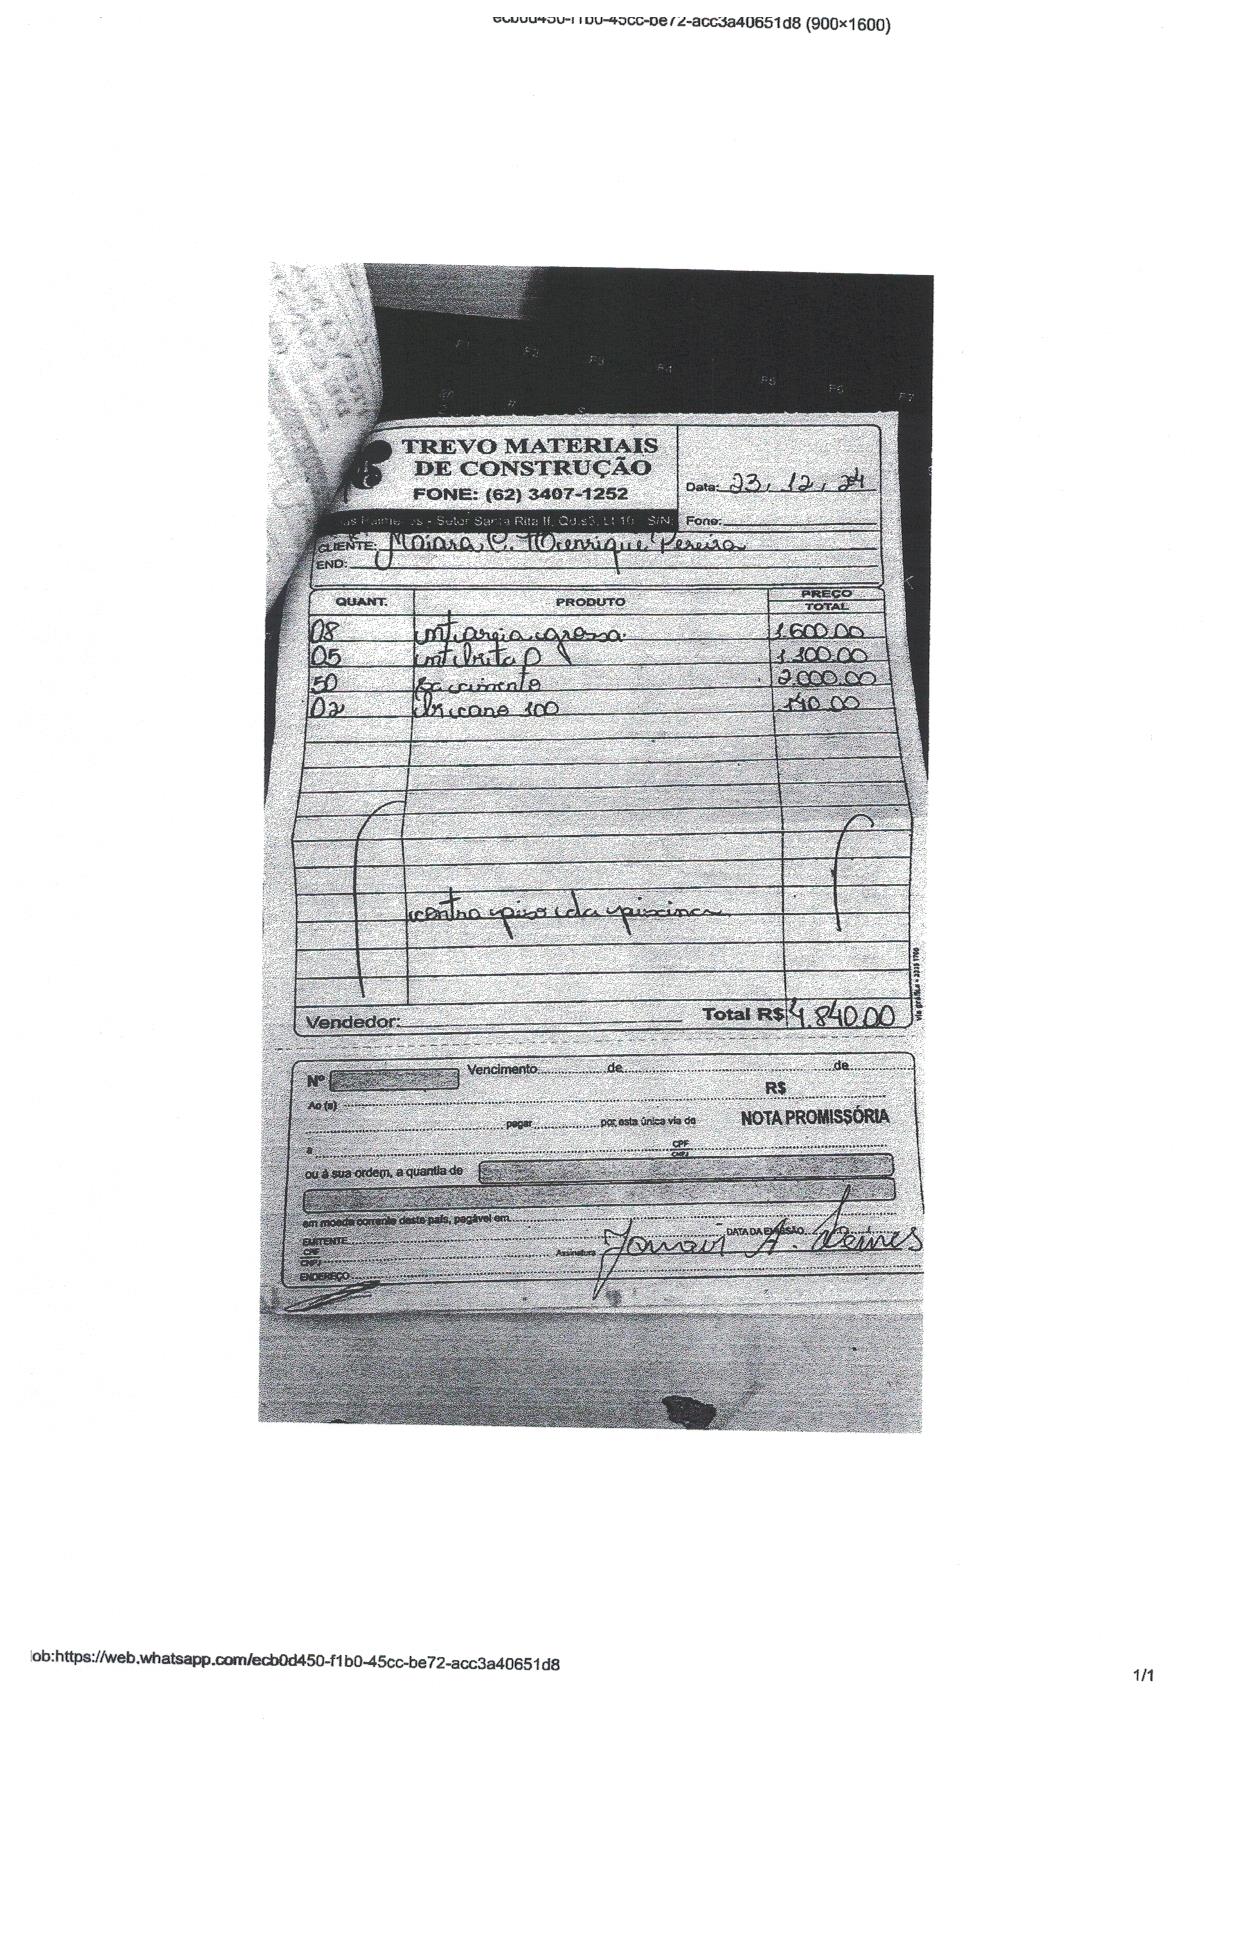 acc3a40651d8 (900×1600)
TREVO MATERIAIS
DE CONSTRUÇÃO
FONE: (62) 3407-1252
Data: 23, 12, 24
Setor Santa Rita II, Qd.s3, Lt 10 S/N
Fone:
CLIENTE: Maiara C. Henrique Pereira
END:
QUANT. PRODUTO PREÇO
TOTAL
08 mt areia grossa 1.600.00
05 mt brita 0 1.100.00
50 sc cimento 2.000.00
02 br cano 100 140.00
contra piso da piscina
Vendedor: Total R$ 4.840.00
Nº Vencimento de de
R$
Ao(s)
pagar por esta única via de NOTA PROMISSÓRIA
a CPF
CNPJ
ou à sua ordem, a quantia de
em moeda corrente deste país, pagável em
EMITENTE DATA DA EMISSÃO
CPF
CNPJ Assinatura
ENDEREÇO
https://web.whatsapp.com/ecb0d450-f1b0-45cc-be72-acc3a40651d8
1/1